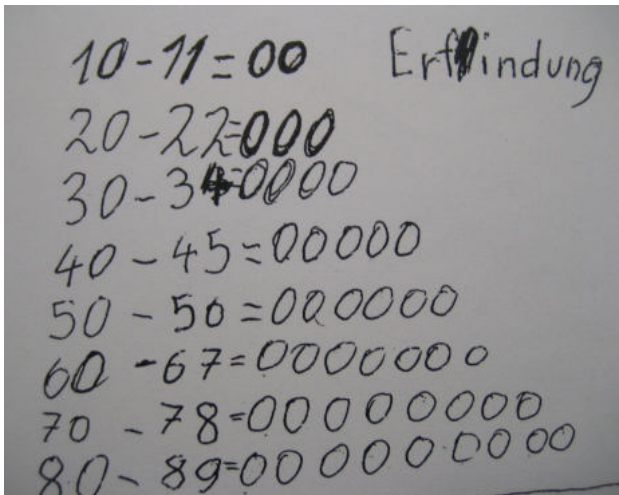 10-11=00 Erfindung
20-22=000
30-34=0000
40-45=00000
50-50=000000
60-67=0000000
70-78=00000000
80-89=000000000